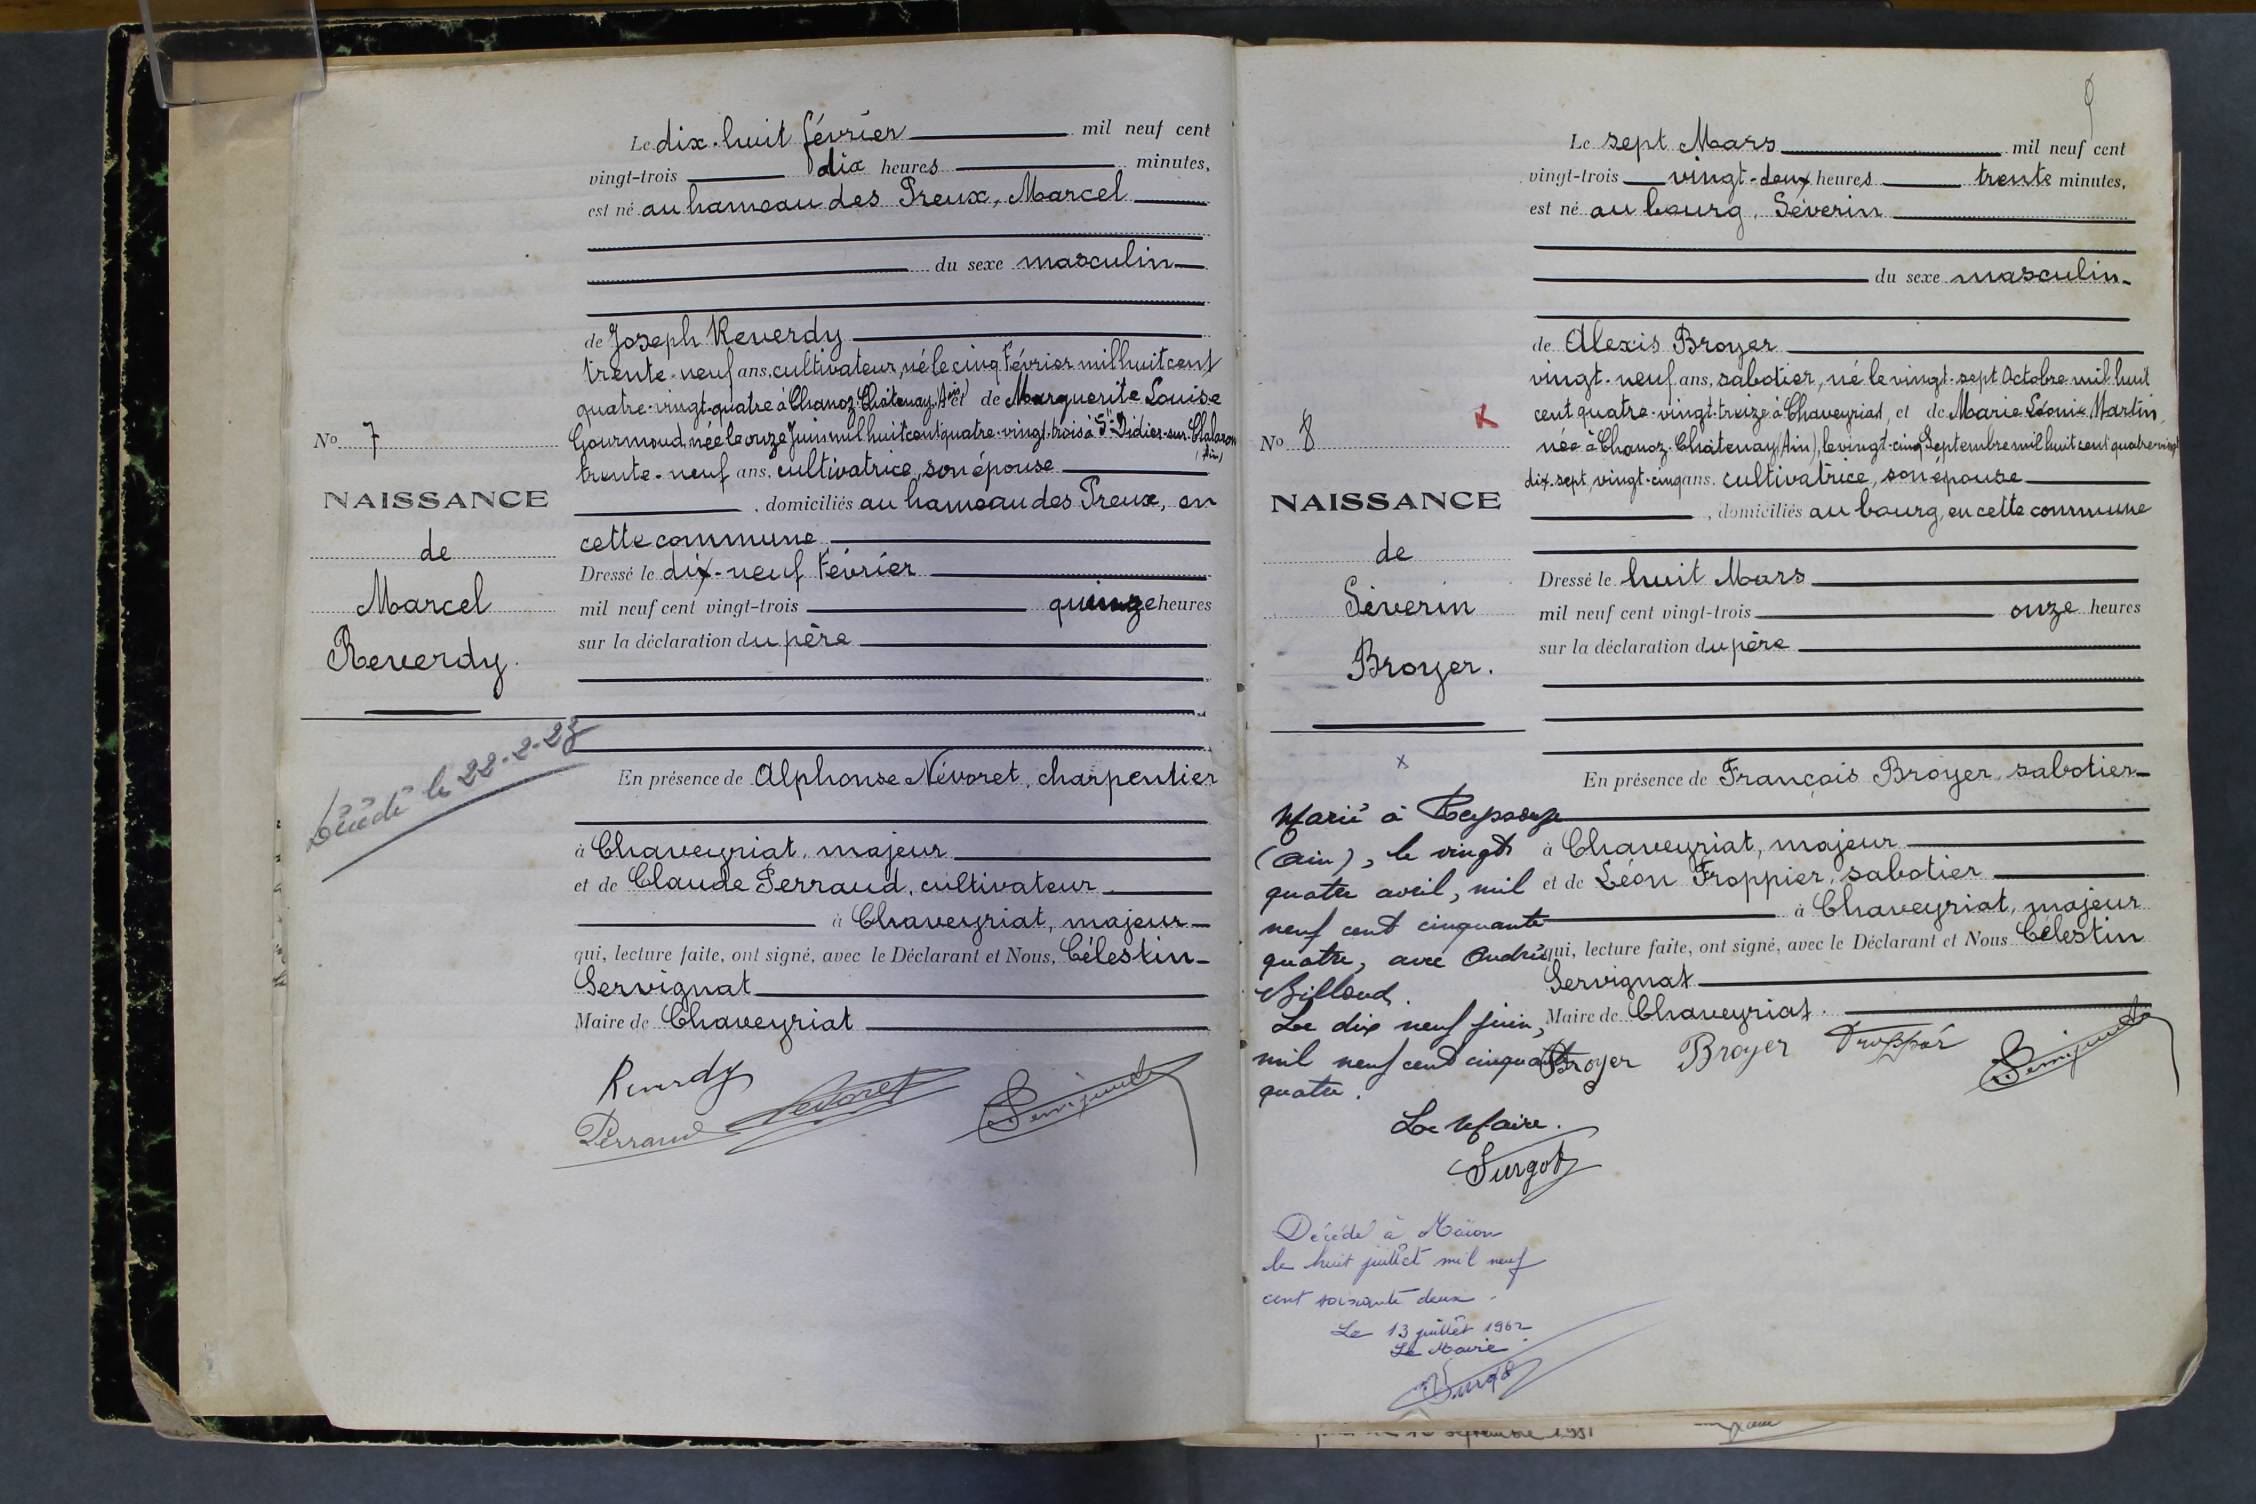 Le dix-huit février mil neuf cent
vingt-trois dix heures minutes,
est né au hameau des Preux, Marcel
du sexe masculin
de Joseph Reverdy
trente-neuf ans, cultivateur, né le cinq Février mil huit cent
quatre-vingt-quatre à Chanoz-Châtenay (Ain) et de Marguerite Louise
Gourmoud, née le onze Juin mil huit cent quatre-vingt-trois à St Didier-sur-Chalaron
(Ain)
trente-neuf ans, cultivatrice, son épouse
, domiciliés au hameau des Preux, en
cette commune
Dressé le dix-neuf Février
mil neuf cent vingt-trois quinze heures
sur la déclaration du père
En présence de Alphonse Névoret, charpentier
à Chaveyriat, majeur
et de Claude Perraud, cultivateur
à Chaveyriat, majeur
qui, lecture faite, ont signé, avec le Déclarant et Nous, Célestin
Servignat
Maire de Chaveyriat
Reverdy
Perraud Nevoret Servignat
No 7
NAISSANCE
de
Marcel
Reverdy.
Décédé le 22-2-23
9
Le sept Mars mil neuf cent
vingt-trois vingt-deux heures trente minutes,
est né au bourg, Séverin
du sexe masculin
de Alexis Broyer
vingt-neuf ans, sabotier, né le vingt-sept Octobre mil huit
cent quatre-vingt-treize à Chaveyriat, et de Marie Léonie Martin,
née à Chanoz-Châtenay (Ain), le vingt-cinq Septembre mil huit cent quatre-vingt
dix-sept, vingt-cinq ans, cultivatrice, son épouse
, domiciliés au bourg, en cette commune
Dressé le huit Mars
mil neuf cent vingt-trois onze heures
sur la déclaration du père
En présence de François Broyer, sabotier
à Chaveyriat, majeur
et de Léon Froppier, sabotier
à Chaveyriat, majeur
qui, lecture faite, ont signé, avec le Déclarant et Nous Célestin
Servignat
Maire de Chaveyriat.
Broyer Broyer Servignat
No 8
NAISSANCE
de
Séverin
Broyer.
x
Marié à Reyssouze
(Ain), le vingt
quatre avril, mil
neuf cent cinquante
quatre, avec Andrée
Billoud.
Le dix neuf juin,
mil neuf cent cinquante
quatre.
Le Maire.
Surgot
Décédé à Mâcon
le huit juillet mil neuf
cent soixante deux.
Le 13 juillet 1962
Le Maire
Surgot
septembre 1981